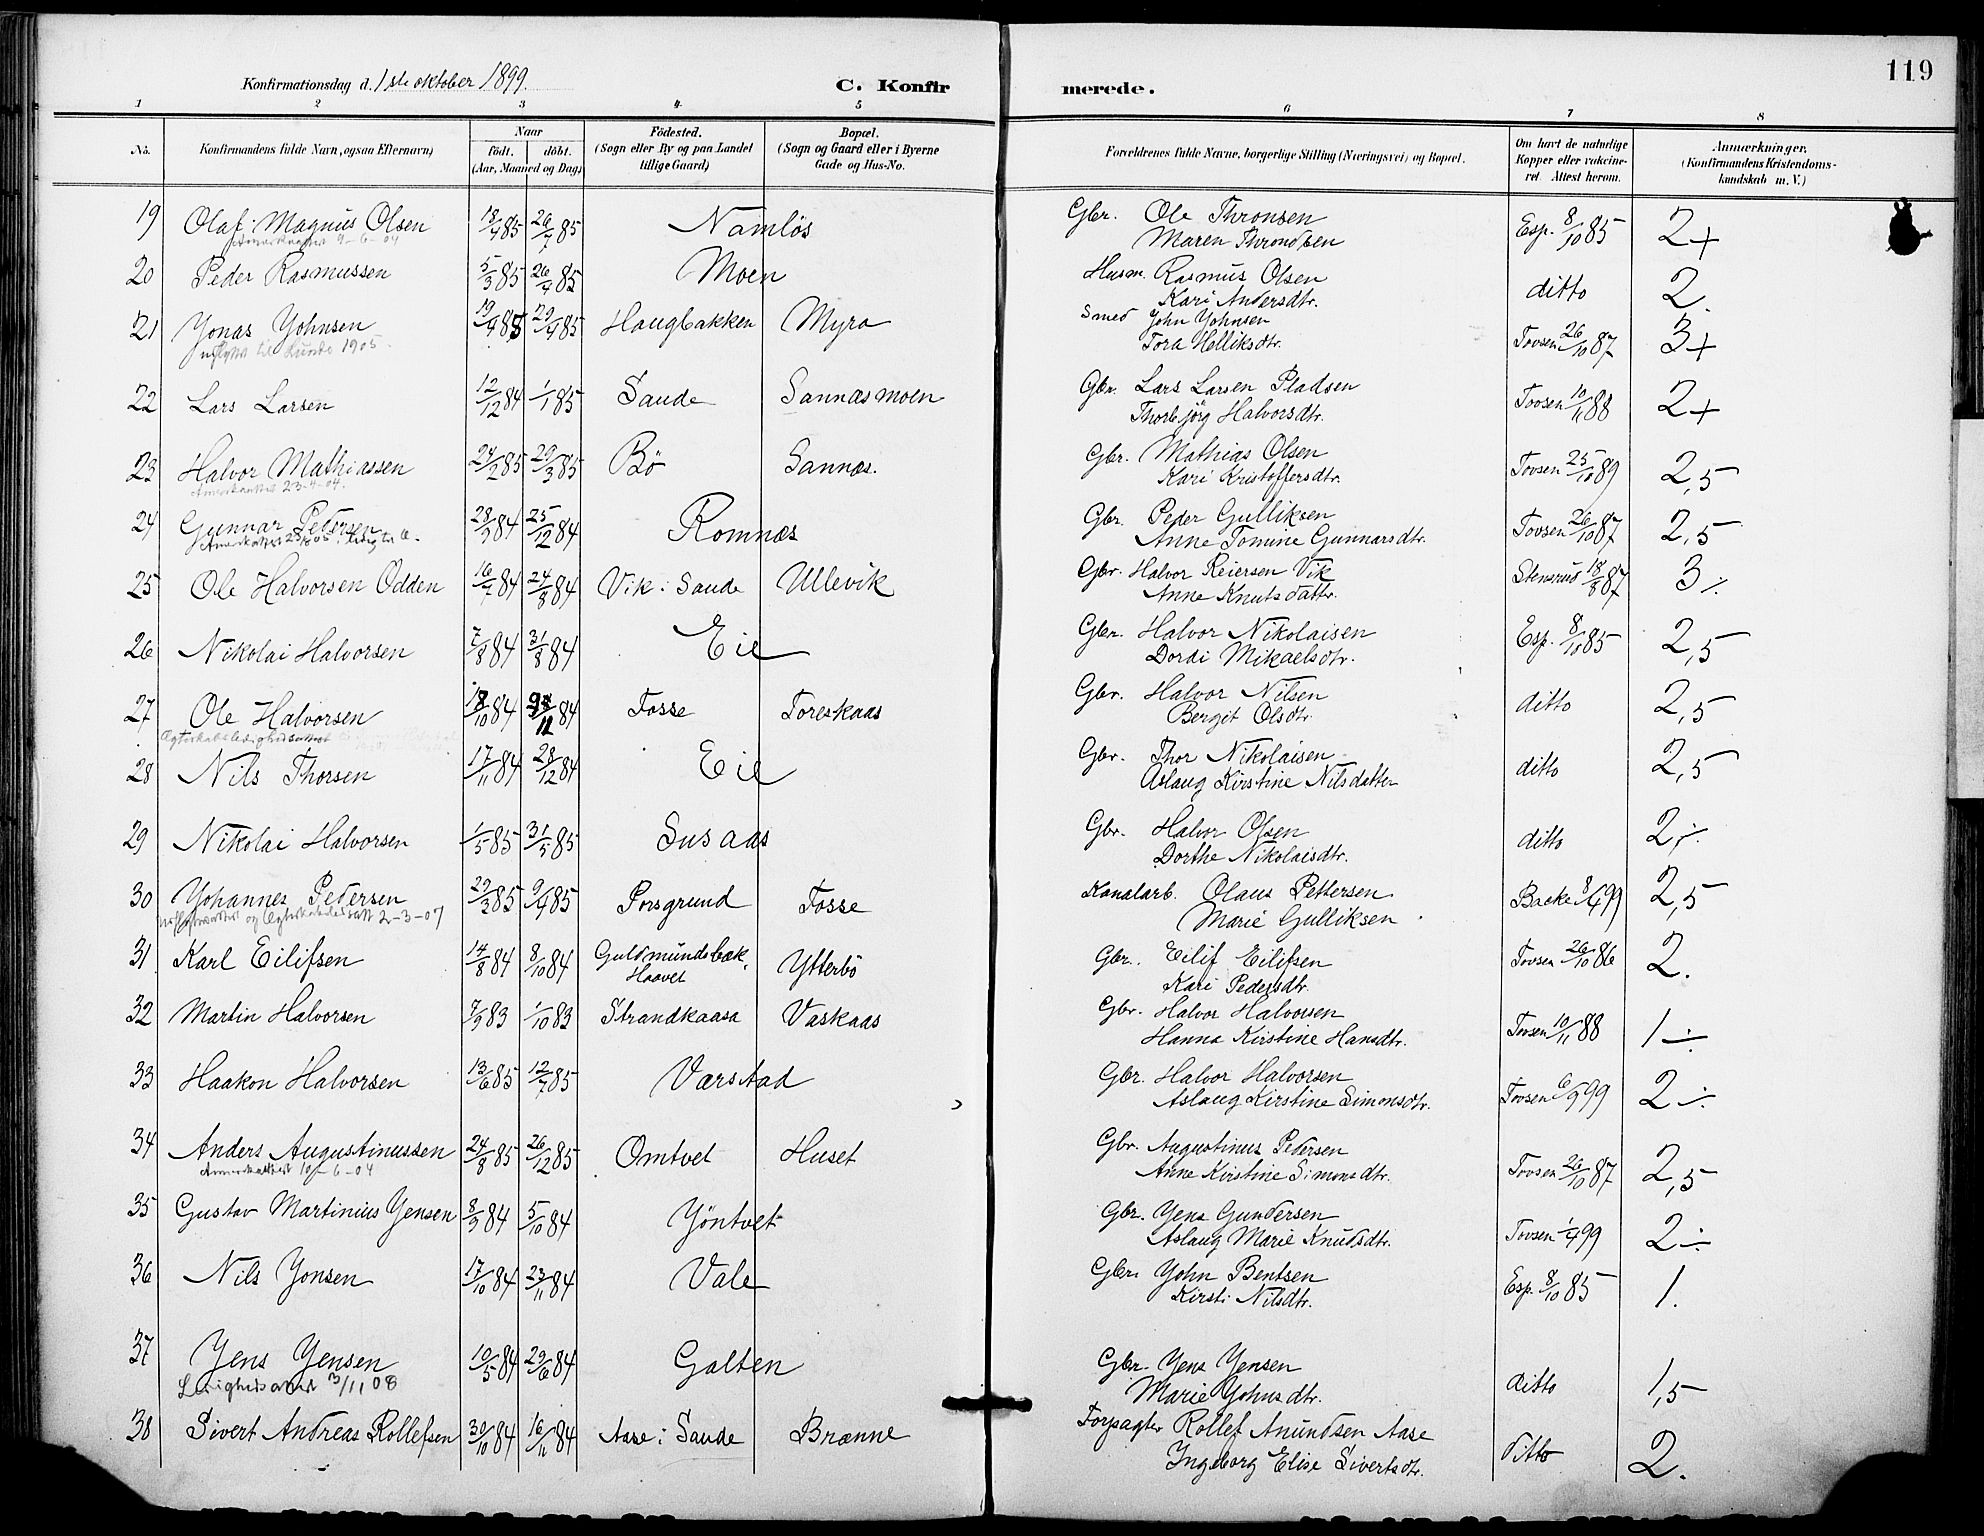 119
Konfirmationsdag d. 1ste oktober 1899.
C. Konfirmerede.
1 2 3 4 5 6 7 8
No.
Konfirmandens fulde Navn, ogsaa Efternavn)
Naar
födt. döbt.
(Aar, Maaned og Dag)
Födested.
(Sogn eller By og paa Landet
tillige Gaard)
Bopæl.
(Sogn og Gaard eller i Byerne
Gade og Hus-No.
Forældrenes fulde Navne, borgerlige Stilling (Næringsvei) og Bopæl.
Om havt de naturlige
Kopper eller vakcine-
ret. Attest herom.
Anmærkninger.
(Konfirmandens Kristendoms-
kundskab m. V.)
19 Olaf Magnus Olsen 18/4 85 26/7 85 Namlös Gbr. Ole Thronsen Esp. 8/10 85 2+
9-6-04 Maren Throndsen
20 Peder Rasmussen 5/3 85 26/4 85 Moen Husm. Rasmus Olsen ditto 2.
Kari Andersdtr.
21 Yonas Yohnsen 19/4 85 29/4 85 Haugbakken Myra Smed John Yohnsen Tovsen 26/10 87 3+
til Lunde 1905. Tora Helliksdtr.
22 Lars Larsen 12/12 84 1/1 85 Saude Sannæsmoen Gbr. Lars Larsen Pladsen Tovsen 10/11 88 2+
Thorbjörg Halvorsdtr.
23 Halvor Mathiassen 24/2 85 29/3 85 Bö Sannæs. Gbr. Mathias Olsen Tovsen 25/10 89 2,5
23-4-04. Kari Kristoffersdtr.
24 Gunnar Pedersen 28/9 84 25/12 84 Romnæs Gbr. Peder Gulliksen Tovsen 26/10 87 2,5
Anne Tomine Gunnarsdtr.
25 Ole Halvorsen Odden 16/7 84 24/8 84 Vik i Saude Ullevik Gbr. Halvor Reiersen Vik Stensrud 18/8 87 3 ⁒
Anne Knutsdattr.
26 Nikolai Halvorsen 7/8 84 31/8 84 Eie Gbr. Halvor Nikolaisen Esp. 8/10 85 2,5
Dordi Mikaelsdtr.
27 Ole Halvorsen 18/10 84 /11 84 Fosse Toreskaas Gbr. Halvor Nilsen ditto 2,5
Bergit Olsdtr.
28 Nils Thorsen 17/11 84 28/12 84 Eie Gbr. Thor Nikolaisen ditto 2,5
Aslaug Kirstine Nilsdatter
29 Nikolai Halvorsen 1/5 85 31/5 85 Susaas Gbr. Halvor Olsen ditto 2 ⁒
Dorthe Nikolaisdtr.
30 Yohannes Pedersen 29/3 85 9/4 85 Porsgrund Fosse Kanalarb. Olaus Pettersen Backe 8/4 99 2,5
2-3-07 Marie Gulliksen
31 Karl Eilifsen 14/8 84 8/10 84 Guldmundsbæk. Haavet Ytterbö Gbr. Eilif Eilifsen Tovsen 26/10 86 2.
Kari Pedersdtr.
32 Martin Halvorsen 7/9 83 1/10 83 Strandkaasa Vaskaas Gbr. Halvor Halvorsen Tovsen 10/11 88 1 ÷
Hanna Kirstine Hansdtr.
33 Haakon Halvorsen 13/6 85 12/7 85 Varstad Gbr. Halvor Halvorsen Tovsen 6/9 99 2 ÷
Aslaug Kirstine Simonsdtr.
34 Anders Augustinussen 24/8 85 26/12 85 Omtvet Huset Gbr. Augustinus Pedersen Tovsen 26/10 87 2,5
10-6-04 Anne Kirstine Simonsdtr.
35 Gustav Martinius Yensen 8/9 84 5/10 84 Yöntvet Gbr. Yens Gundersen Tovsen 1/4 99 2 ÷
Aslaug Marie Knudsdtr.
36 Nils Yonsen 17/10 84 23/11 84 Vale Gbr. Yohn Bentsen Esp. 8/10 85 1.
Kirsti Nilsdtr.
37 Yens Yensen 10/5 84 29/6 84 Galten Gbr. Yens Yensen ditto 1,5
Ledighedsattest 3/11 08 Marie Yohnsdtr.
38 Sivert Andreas Rollefsen 30/10 84 16/11 84 Aase i Saude Brænne Forpagter Rollef Anundsen Aase ditto 2.
Ingeborg Elise Sivertsdtr.